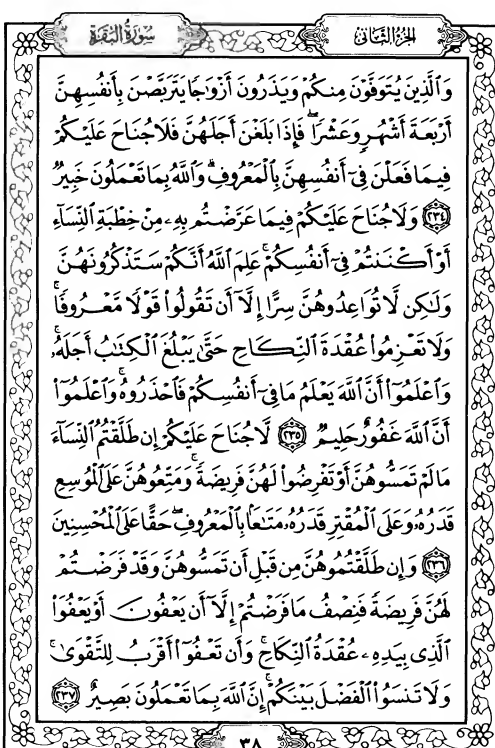 الجزء الثاني
سورة البقرة
وَالَّذِينَ يُتَوَفَّوْنَ مِنكُمْ وَيَذَرُونَ أَزْوَٰجًا يَتَرَبَّصْنَ بِأَنفُسِهِنَّ
أَرْبَعَةَ أَشْهُرٍ وَعَشْرًا ۖ فَإِذَا بَلَغْنَ أَجَلَهُنَّ فَلَا جُنَاحَ عَلَيْكُمْ
فِيمَا فَعَلْنَ فِىٓ أَنفُسِهِنَّ بِٱلْمَعْرُوفِ ۗ وَٱللَّهُ بِمَا تَعْمَلُونَ خَبِيرٌ
٢٣٤ وَلَا جُنَاحَ عَلَيْكُمْ فِيمَا عَرَّضْتُم بِهِۦ مِنْ خِطْبَةِ ٱلنِّسَآءِ
أَوْ أَكْنَنتُمْ فِىٓ أَنفُسِكُمْ ۚ عَلِمَ ٱللَّهُ أَنَّكُمْ سَتَذْكُرُونَهُنَّ
وَلَٰكِن لَّا تُوَاعِدُوهُنَّ سِرًّا إِلَّآ أَن تَقُولُوا۟ قَوْلًا مَّعْرُوفًا ۚ
وَلَا تَعْزِمُوا۟ عُقْدَةَ ٱلنِّكَاحِ حَتَّىٰ يَبْلُغَ ٱلْكِتَٰبُ أَجَلَهُۥ ۚ
وَٱعْلَمُوٓا۟ أَنَّ ٱللَّهَ يَعْلَمُ مَا فِىٓ أَنفُسِكُمْ فَٱحْذَرُوهُ ۚ وَٱعْلَمُوٓا۟
أَنَّ ٱللَّهَ غَفُورٌ حَلِيمٌ ٢٣٥ لَّا جُنَاحَ عَلَيْكُمْ إِن طَلَّقْتُمُ ٱلنِّسَآءَ
مَا لَمْ تَمَسُّوهُنَّ أَوْ تَفْرِضُوا۟ لَهُنَّ فَرِيضَةً ۚ وَمَتِّعُوهُنَّ عَلَى ٱلْمُوسِعِ
قَدَرُهُۥ وَعَلَى ٱلْمُقْتِرِ قَدَرُهُۥ مَتَٰعًۢا بِٱلْمَعْرُوفِ ۖ حَقًّا عَلَى ٱلْمُحْسِنِينَ
٢٣٦ وَإِن طَلَّقْتُمُوهُنَّ مِن قَبْلِ أَن تَمَسُّوهُنَّ وَقَدْ فَرَضْتُمْ
لَهُنَّ فَرِيضَةً فَنِصْفُ مَا فَرَضْتُمْ إِلَّآ أَن يَعْفُونَ أَوْ يَعْفُوَا۟
ٱلَّذِى بِيَدِهِۦ عُقْدَةُ ٱلنِّكَاحِ ۚ وَأَن تَعْفُوٓا۟ أَقْرَبُ لِلتَّقْوَىٰ ۚ
وَلَا تَنسَوُا۟ ٱلْفَضْلَ بَيْنَكُمْ ۚ إِنَّ ٱللَّهَ بِمَا تَعْمَلُونَ بَصِيرٌ ٢٣٧
٣٨